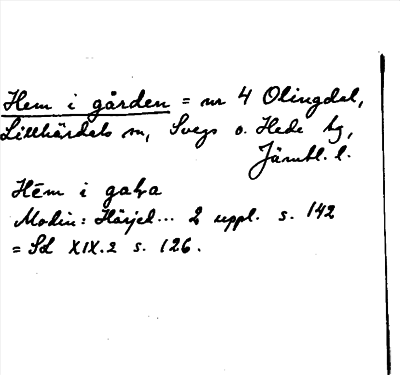 Hem i gården = nr 4 Olingdal,
Lillhärdals sn, Svegs o. Hede tg,
Jämtl. l.
Hēm i
Modin: Härjed... 2 uppl. s. 142
= Sd XIX.2 s. 126.